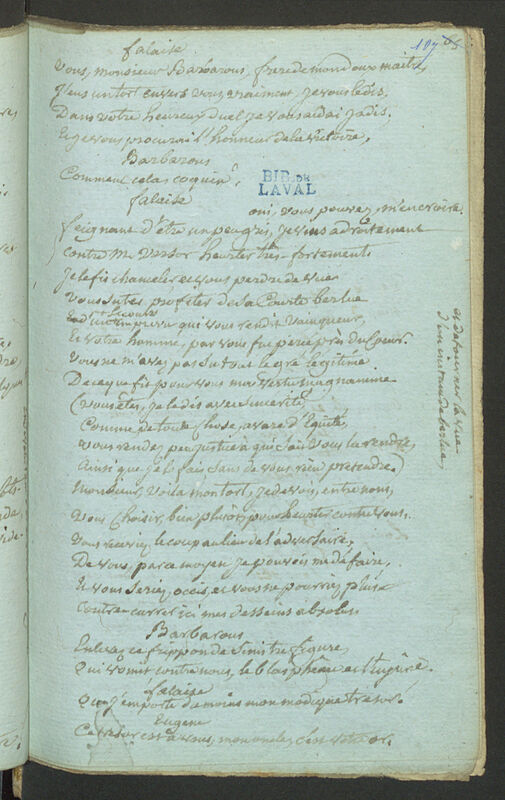 falaise
107 85
Vous, monsieur Barbarous, frere de mon doux maitre,
J'eus un tort envers vous, vraiment, je vous le dis.
Dans votre heureux duel je vous aidai jadis,
Et je vous procurai l'honneur de la victoire,
Barbarous
Comment cela coquin?
BIB. DE
LAVAL
falaise
oui, vous pouvez m'en croire.
feignant d'être un peu gris, je vins adroitement
contre M. heurter très fortement
Je le fis chanceler et vous perdre de vue
Vous sutes profiter de la Courte berlue
secours
imprevu qui vous rendit vainqueur,
Et votre homme, par vous fut percé près du Coeur.
Vous ne m'avez pas su tout le gré legitime
De ce que fit pour vous ma vertu magnanime
(vous êtes, je le dis avec sincerité,
Comme de toute Chose, avare d'Equité,
Vous rendez peu justice à qui sait vous la rendre,
Ainsi que je le fais sans de vous rien pretendre)
Monsieur, voila mon tort, je devois, entre nous,
Vous Choisir, bien plutôt, pour heurter contre vous.
Vous receviez le coup au lieu de l'adversaire,
De vous, par ce moyen je pouvois me défaire,
Et vous seriez occis, et vous ne pourriez plus
Contre-carrer ici mes desseins absolus
Barbarous
Enlevez ce frippon de sinistre figure,
Qui vomit contre nous, le blasphême et l'injure.
falaise
Que j'emporte du moins mon modique tresor.
Eugene
Ce tresor est à vous, mon oncle, c'est votre or.
et detourner la vue
d'un instant de berlue,